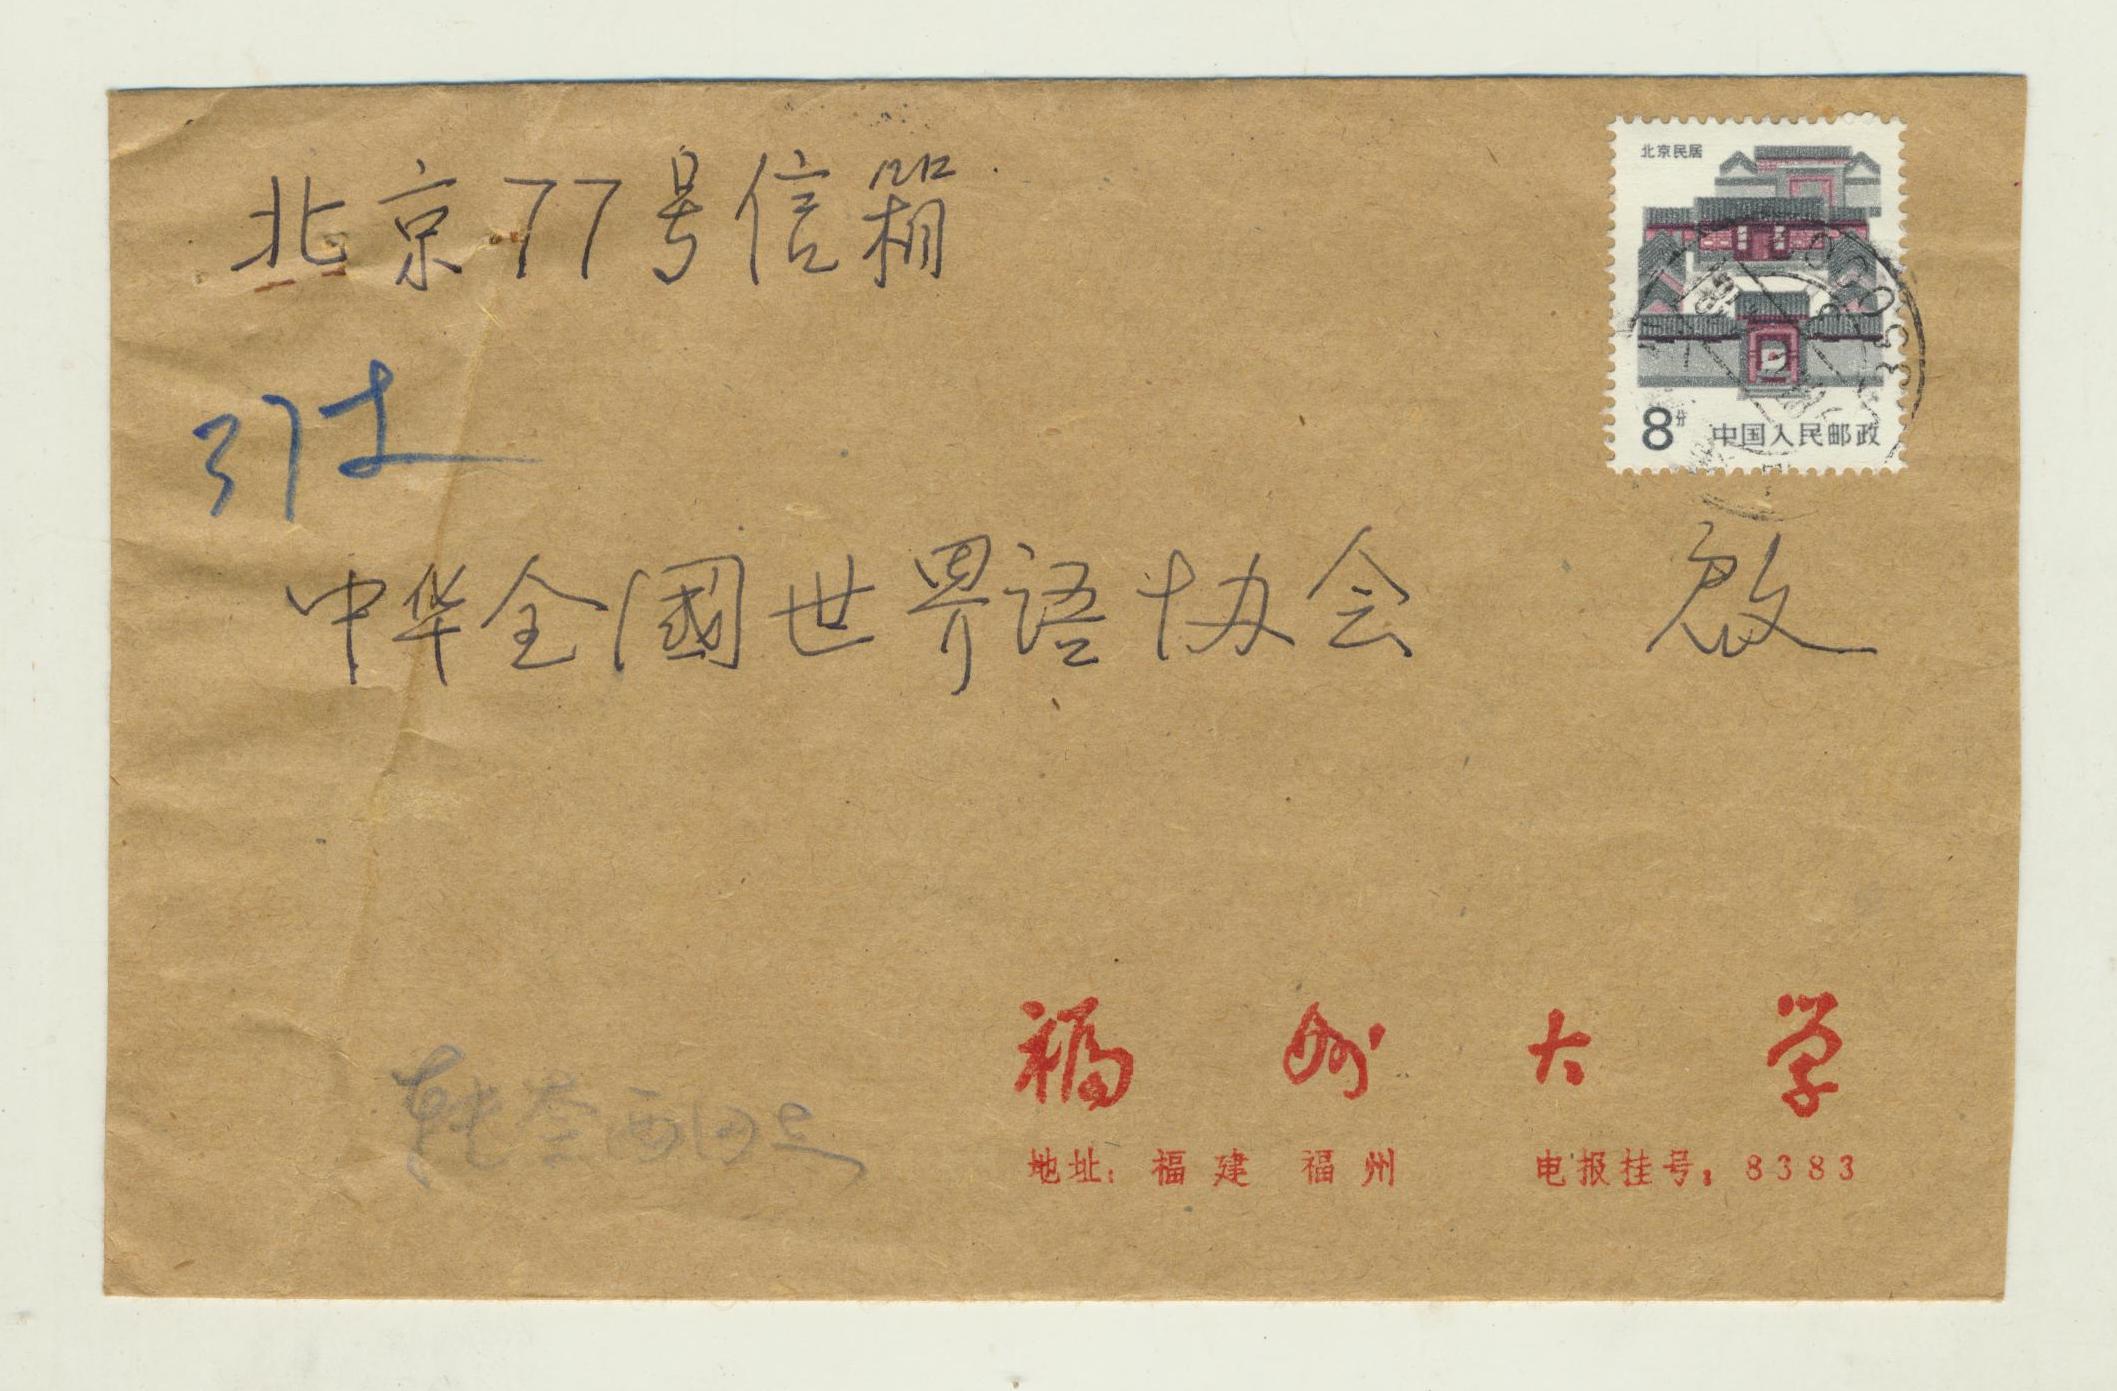 北京77号信箱
北京民居
8分 中国人民邮政
中华全國世界语协会 启
福州大学
地址：福建 福州 电报挂号：8383